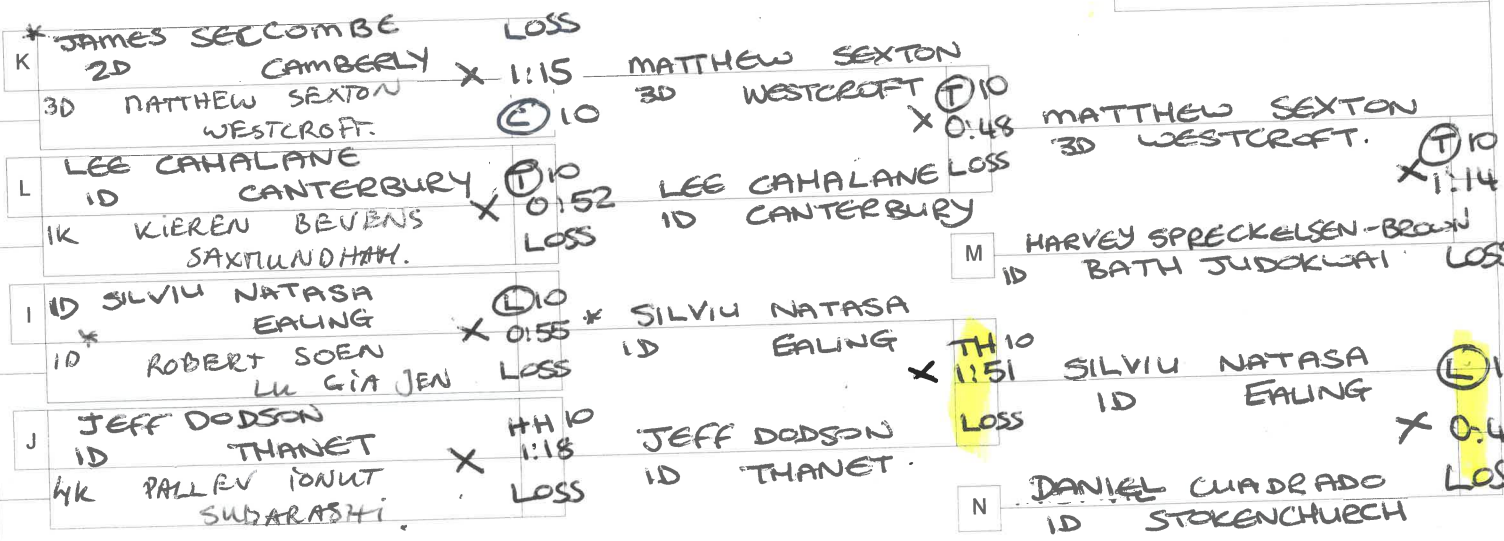 * JAMES SECCOMBE LOSS
K 2D CAMBERLY X 1:15
3D MATTHEW SEXTON
WESTCROFT. E 10
L LEE CAHALANE
1D CANTERBURY T 10
X 0:52
1K KIEREN BEVENS LOSS
SAXMUNDHAM.
I 1D SILVIU NATASA L 10
EALING X 0:55
1D * ROBERT SOEN
LU GIA JEN LOSS
J JEFF DODSON HH 10
1D THANET X 1:18
4K PALLEV IONUT LOSS
SUBARASHI.
MATTHEW SEXTON
3D WESTCROFT T 10
X 0:48
LEE CAHALANE LOSS
1D CANTERBURY
* SILVIU NATASA
1D EALING TH 10
X 1:51
LOSS
JEFF DODSON
1D THANET.
MATTHEW SEXTON
3D WESTCROFT. T 10
X 1:14
M HARVEY SPRECKELSEN-BROWN
1D BATH JUDOKWAI LOSS
SILVIU NATASA L 1
1D EALING
X 0:4
N DANIEL CUADRADO LOSS
1D STOKENCHURCH